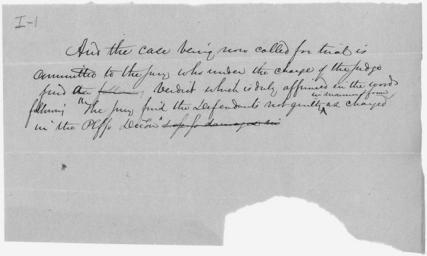 I-1
And the case being now called for trial is
committed to the jury who under the charge of the judge
find a verdict which is duly affirmed in the words
in manner & form
following "The jury find the Defendants not guilty as charged
in the Plffs Decon"